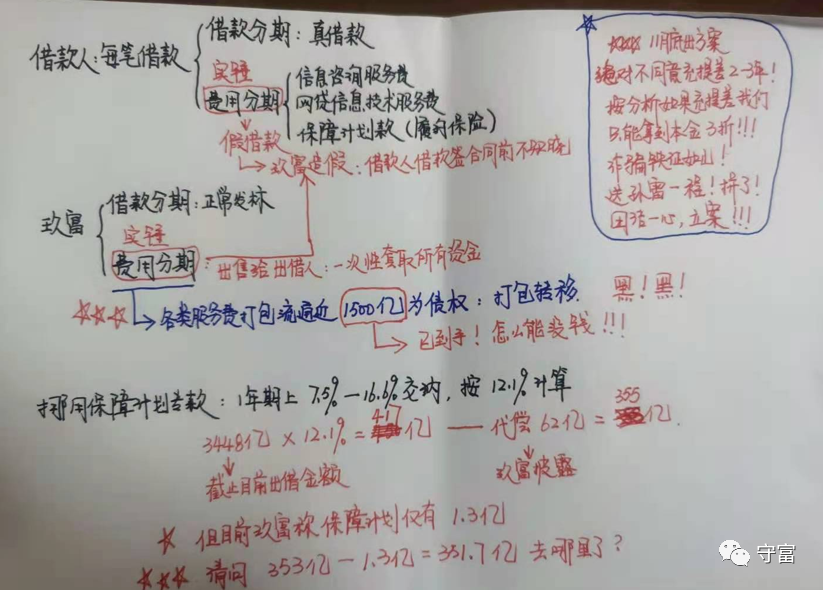 借款人:每笔借款
借款分期:真借款
实锤
费用分期
信息咨询服务费
网贷信息技术服务费
保障计划款(履约保险)
假借款
玖富造假:借款人借款签合同前不知晓
11月底出方案
绝对不同意充提差2-3年!
按分析如果充提差我们
只能拿到本金3折!!!
诈骗铁证如山!
送孙雷一程!拼了!
团结一心,立案!!!
玖富
借款分期:正常发标
实锤
费用分期:出售给出借人:一次性套取所有资金
各类服务费打包流通近1500亿为债权:打包转移
黑!黑!
已到手!怎么能没钱!!!
挪用保障计划善款:1年期上7.5%-16.6%交纳,按12.1%计算
3448亿×12.1%=417亿——代偿62亿=355亿.
截止目前出借金额
玖富披露
但目前玖富称保障计划仅有1.3亿
请问353亿-1.3亿=351.7亿去哪里了?
守富